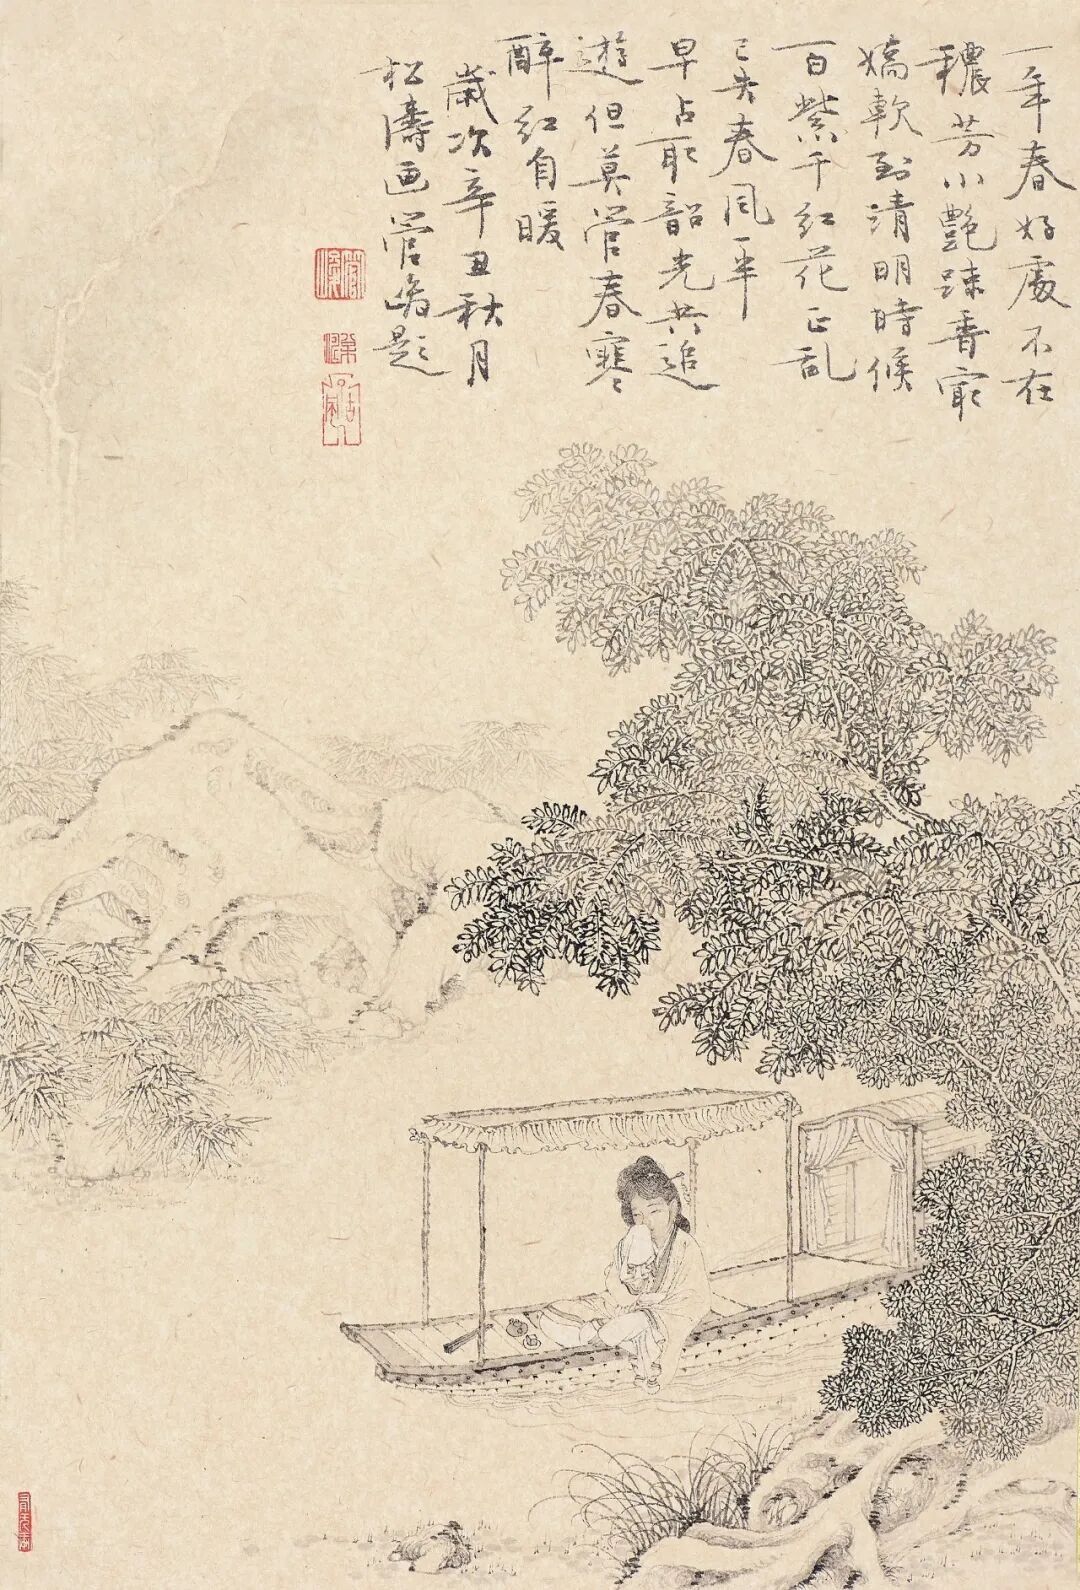 一年春好處不在
穠芳小艷踈香寂
嬌軟到清明時候
百紫千紅花正乱
已失春風半
早占取韶光共追
遊但莫管春寒
醉紅自暖
歲次辛丑秋月
松濤画管峻題